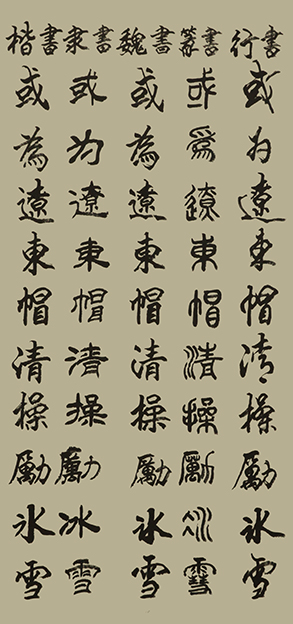 楷書
或為遼東帽清操勵氷雪
隶書
或为遼東帽清操勵冰雪
魏書
或為遼東帽清操勵氷雪
篆書
或爲遼東帽清操勵冰雪
行書
或为遼東帽清操勵氷雪